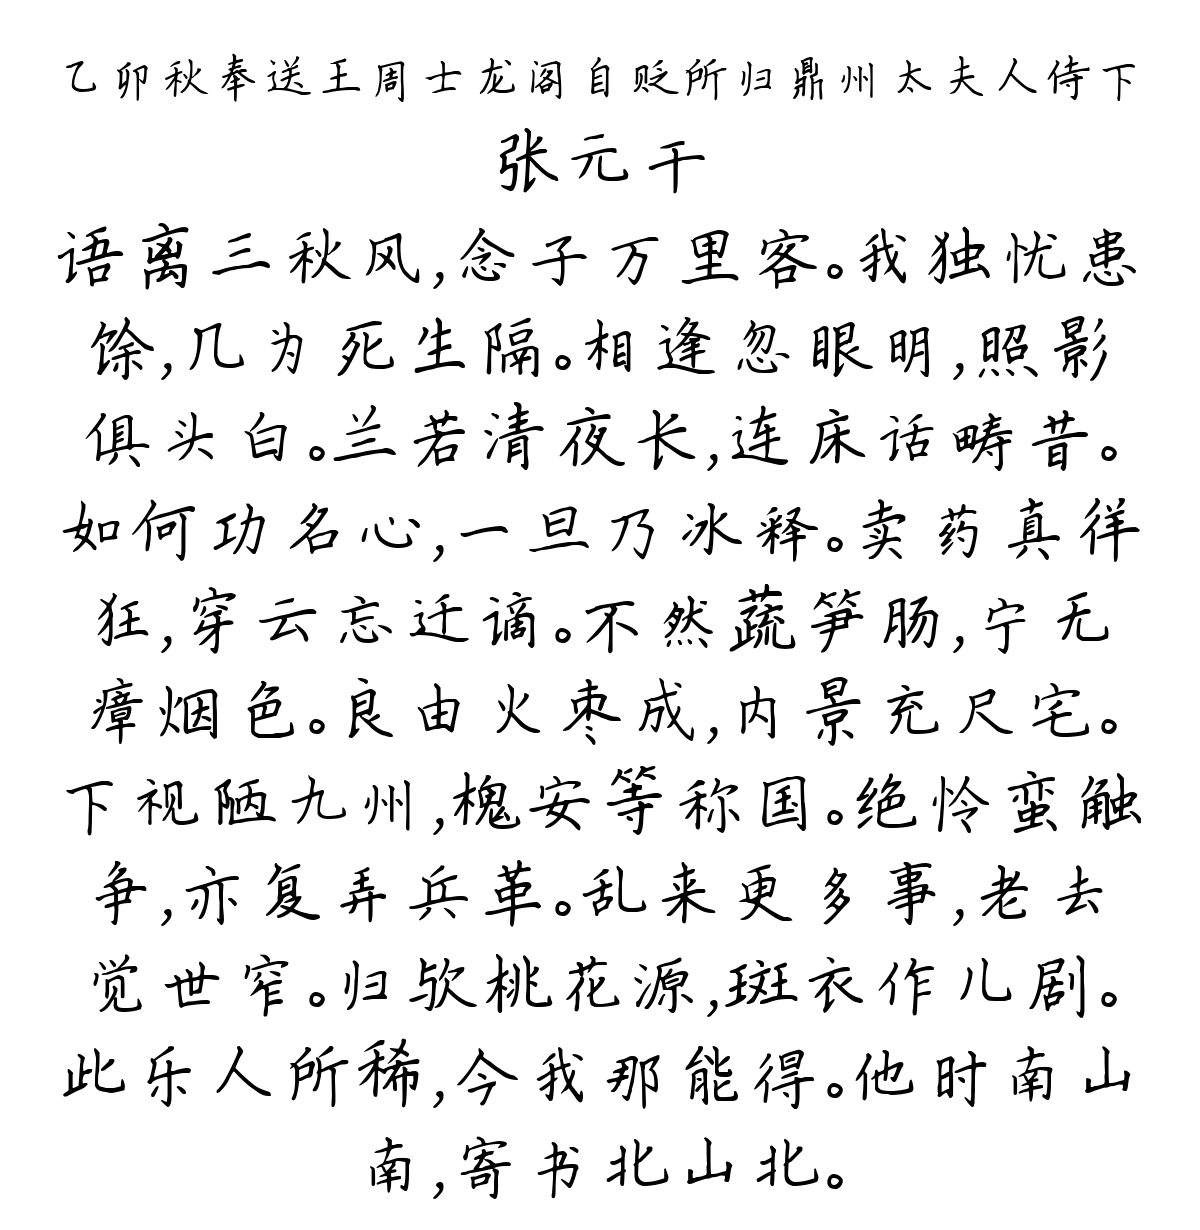 乙卯秋奉送王周士龙阁自贬所归鼎州太夫人侍下
张元干
语离三秋风,念子万里客。我独忧患
馀,几为死生隔。相逢忽眼明,照影
俱头白。兰若清夜长,连床话畴昔。
如何功名心,一旦乃冰释。卖药真徉
狂,穿云忘迁谪。不然蔬笋肠,宁无
瘴烟色。良由火枣成,内景充尺宅。
下视陋九州,槐安等称国。绝怜蛮触
争,亦复弄兵革。乱来更多事,老去
觉世窄。归欤桃花源,斑衣作儿剧。
此乐人所稀,今我那能得。他时南山
南,寄书北山北。